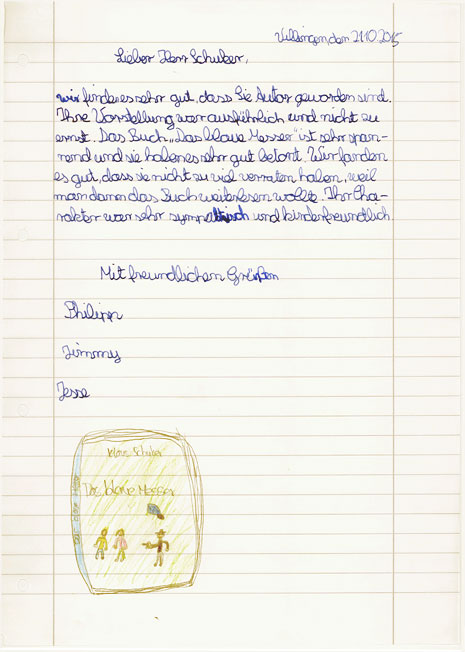 Villingen den 21.10.2015
Lieber Herr Schuker,
wir finden es sehr gut, dass Sie Autor geworden sind.
Ihre Vorstellung war ausführlich und nicht zu
ernst. Das Buch „Das blaue Messer" ist sehr span-
nend und sie haben es sehr gut betont. Wir fanden
es gut, dass sie nicht zu viel verraten haben, weil
man dann das Buch weiterlesen wollte. Ihr Cha-
rakter war sehr sympathisch und kinderfreundlich.
Mit freundlichen Grüßen
Philipp
Jimmy
Jesse
Klaus Schuker
Das blaue Messer
Das blaue Messer